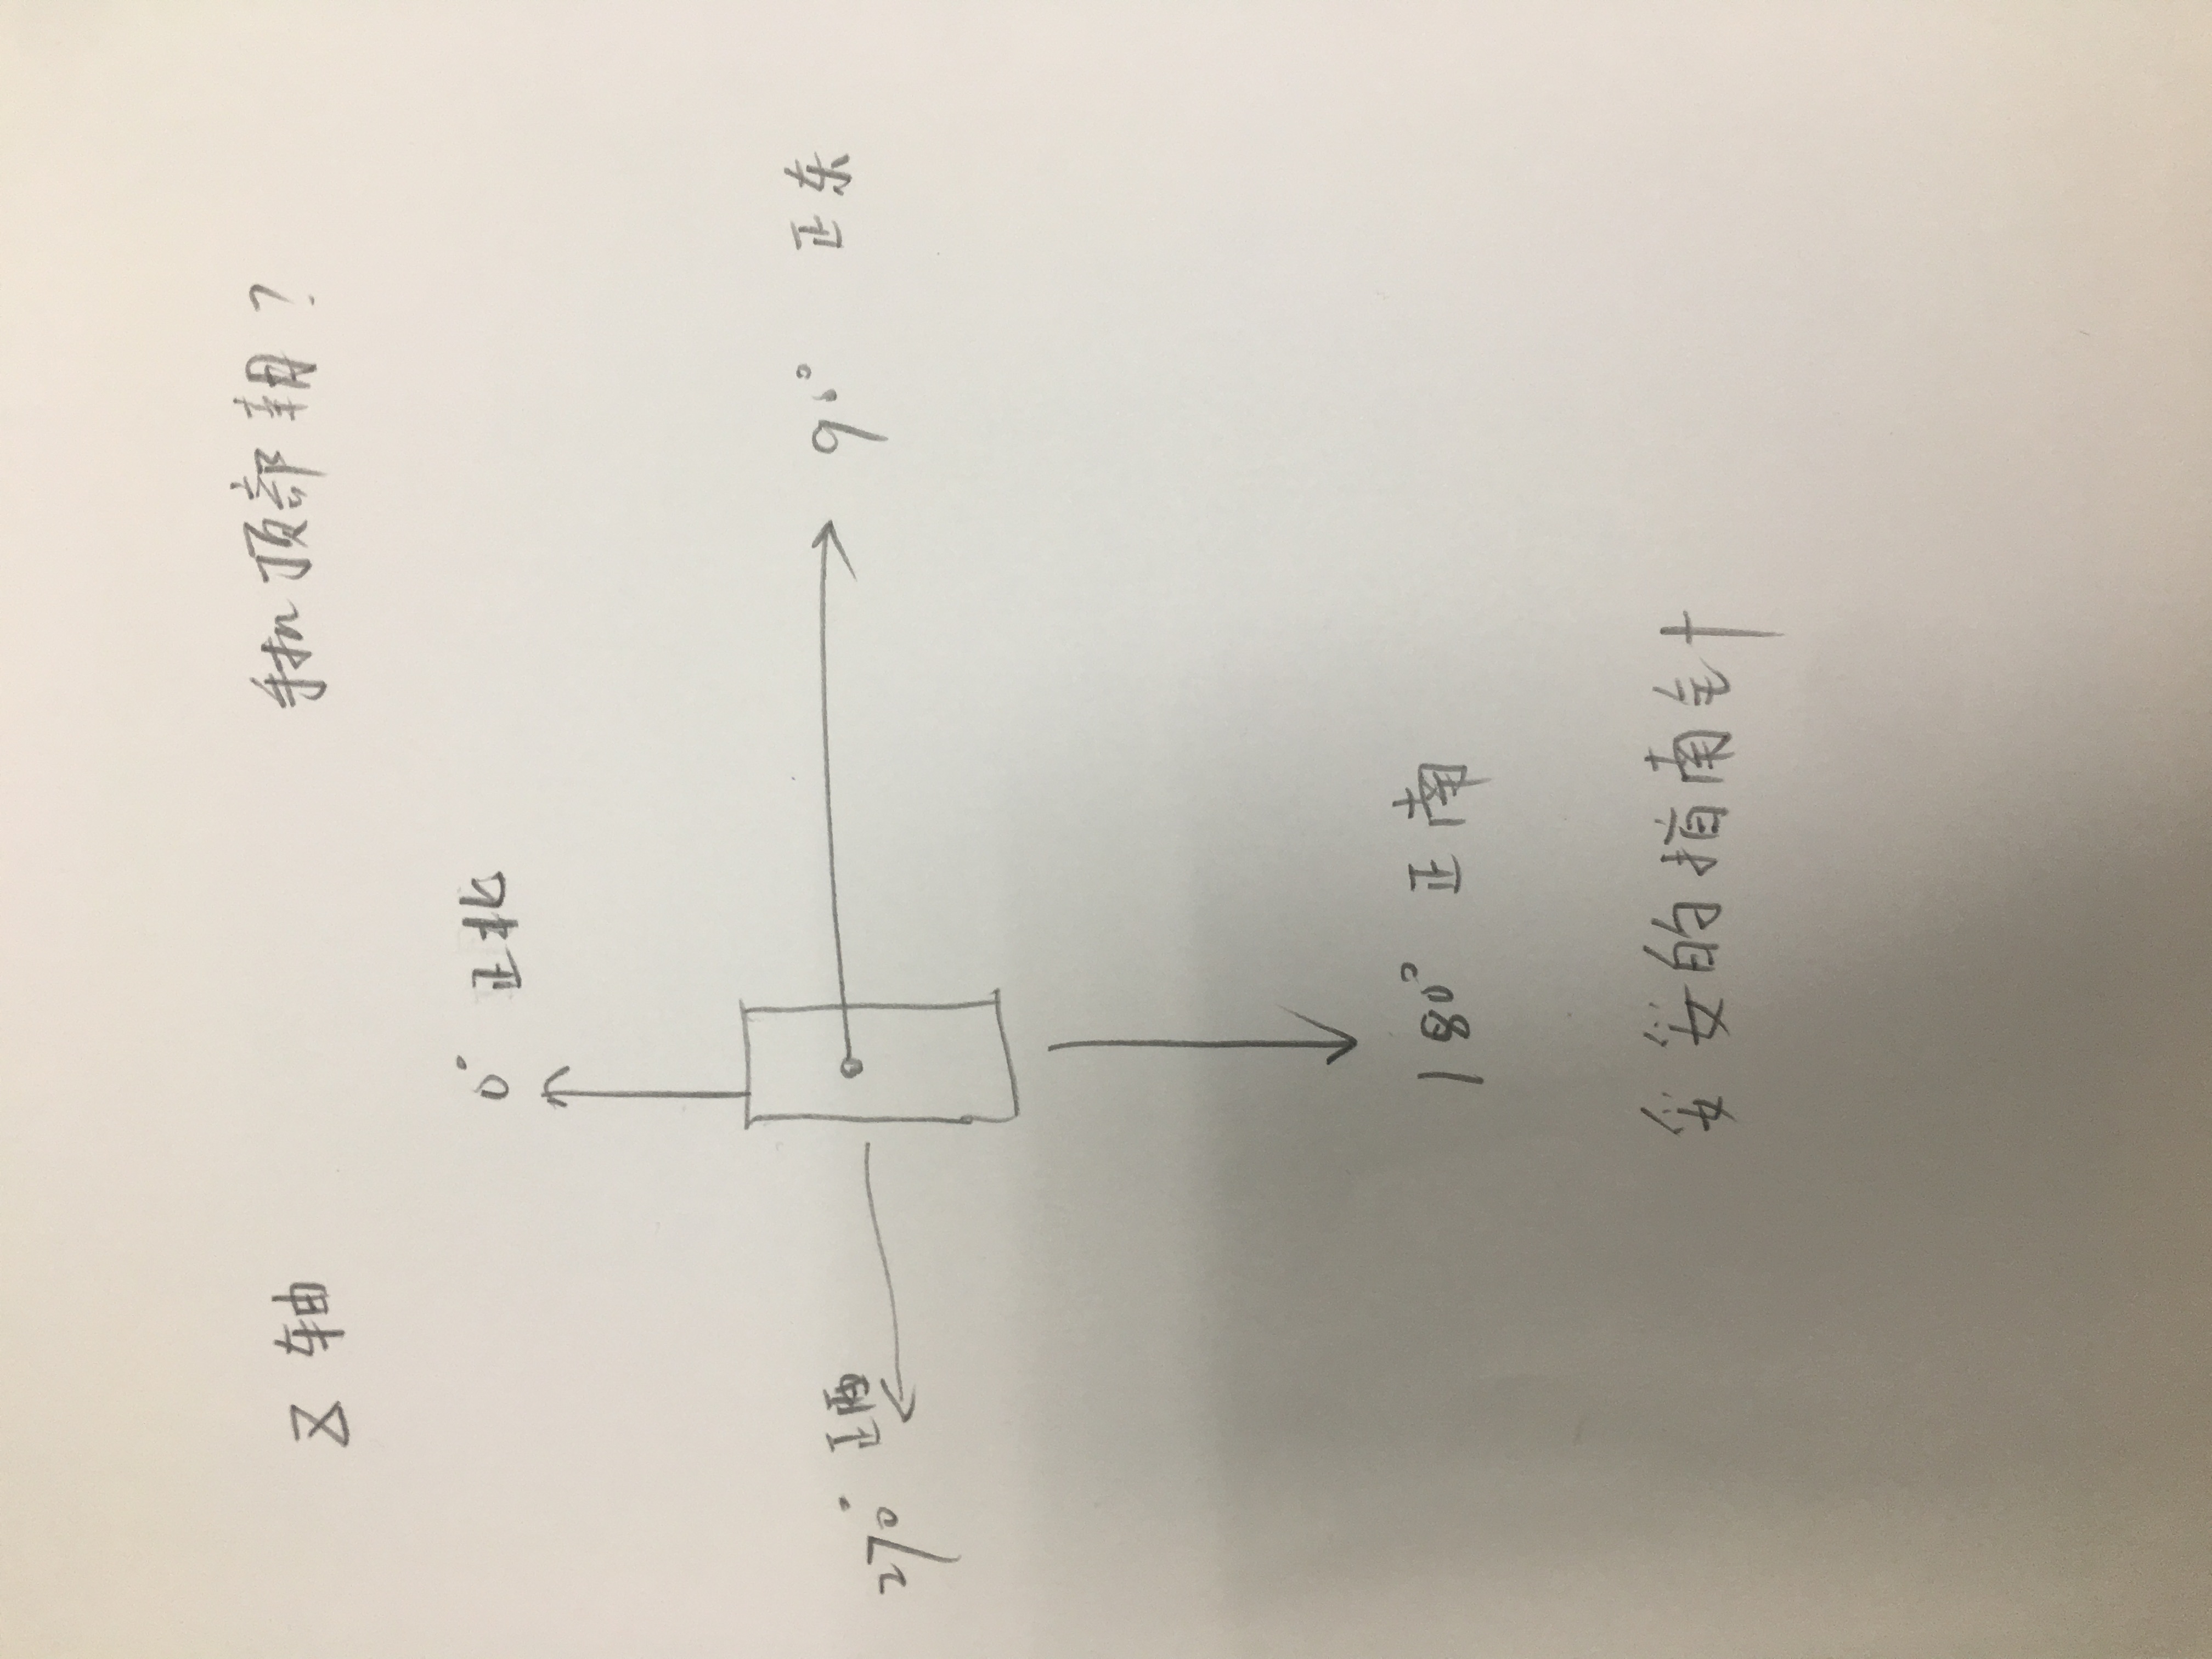 Z 轴
手机顶部朝?
0° 正北
270° 正西
90° 正东
180° 正南
妥妥的指南针